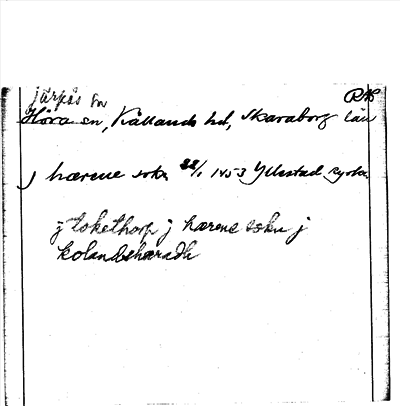 Järpås sn RAP
Höra sn, Kållands hd, Skaraborg län
J hærene sokn 22/1 1453 Yllestad kyrka
j tokethorp j hærene sokn j
kolandshæradh